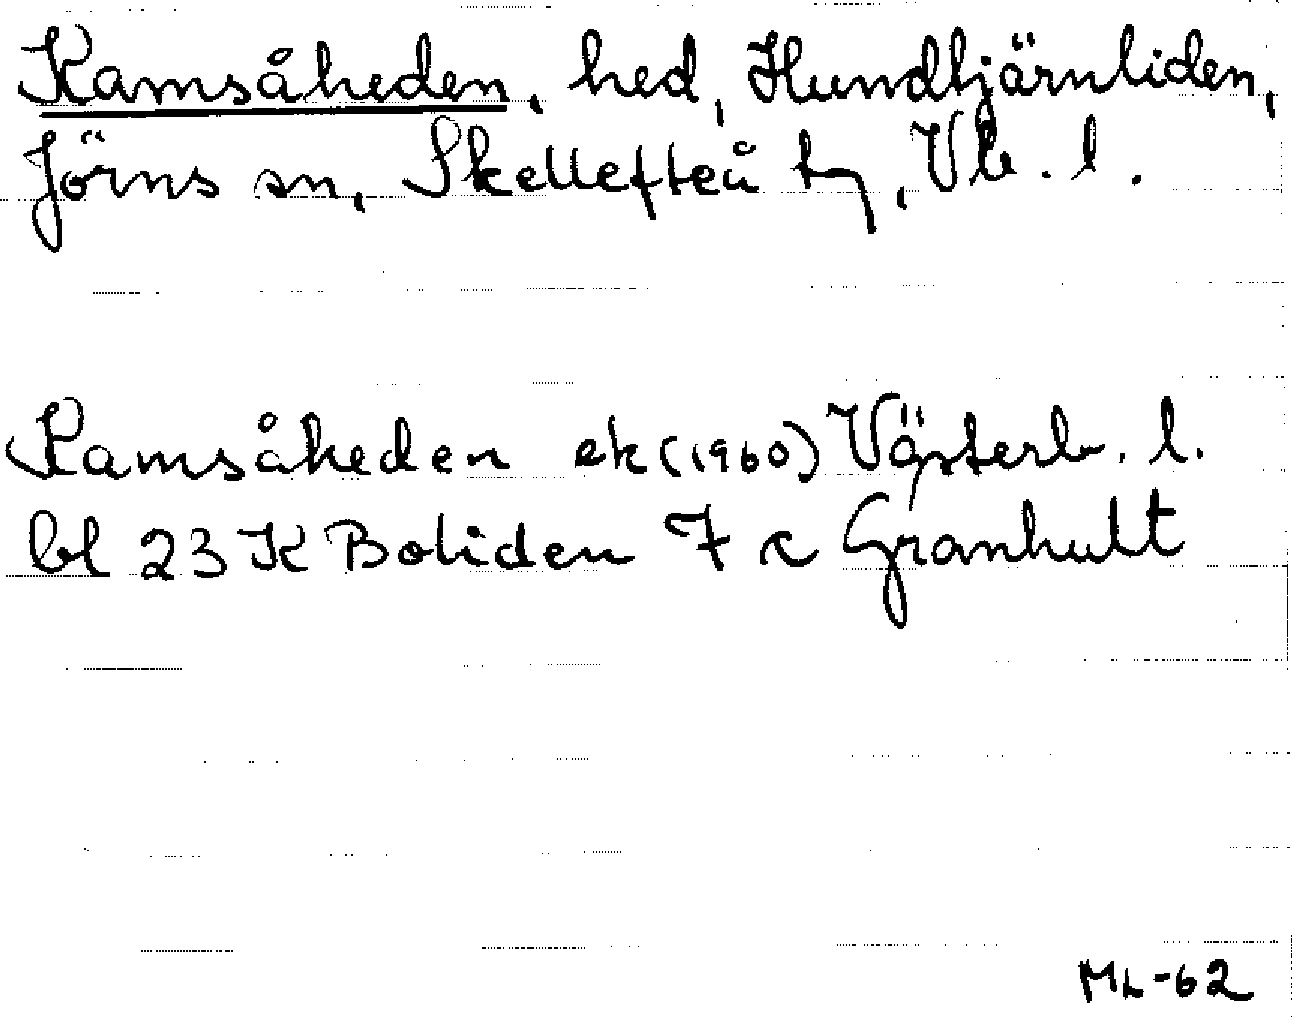 Kamsåheden, hed, Hundtjärnliden,
Jörns sn, Skellefteå tg, Vb. l.
Kamsåheden ek (1960) Västerb. l.
bl 23 K Boliden 7 c Granhult
ML-62